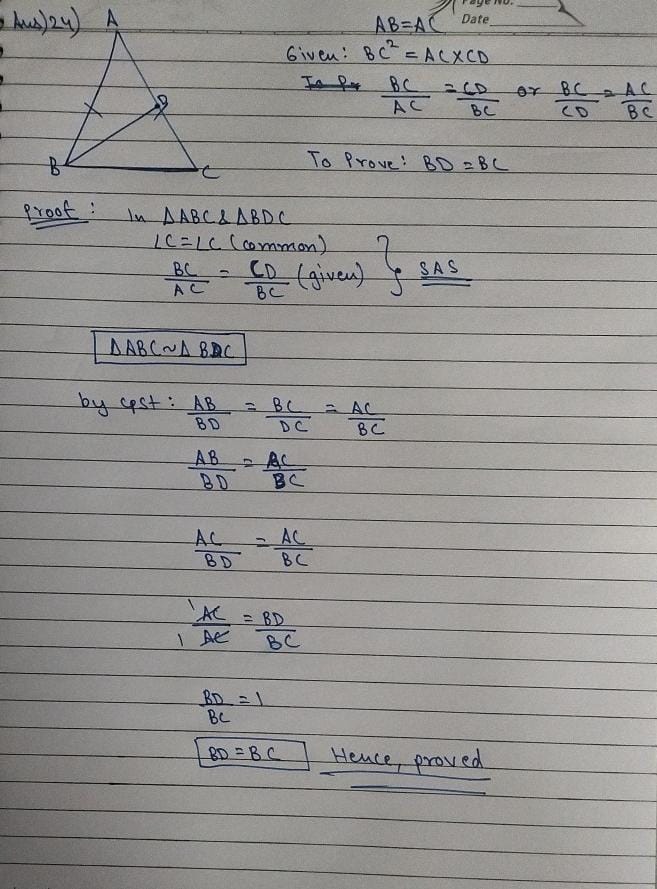 Page No.
Date
Ans) 24)
A
D
B
C
AB = AC
Given: BC² = AC × CD
BC/AC = CD/BC or BC/CD = AC/BC
To Prove: BD = BC
Proof: In ΔABC & ΔBDC
∠C = ∠C (common)
BC/AC = CD/BC (given) } SAS
ΔABC ~ Δ BDC
by cpst: AB/BD = BC/DC = AC/BC
AB/BD = AC/BC
AC/BD = AC/BC
1 AC/1 AC = BD/BC
BD/BC = 1
BD = BC Hence, proved